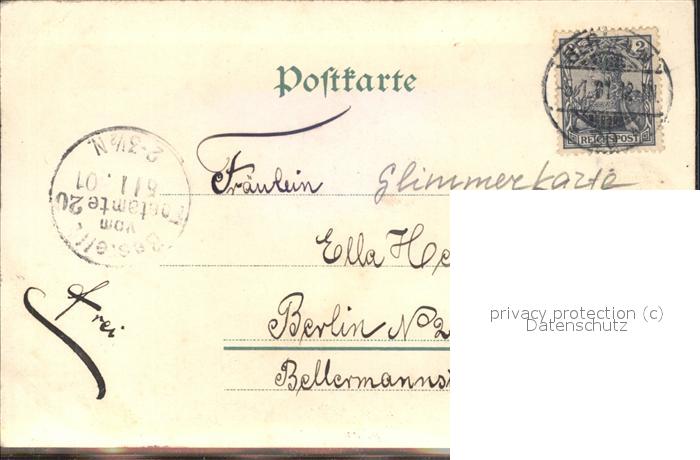 Postkarte
2
REICHSPOST
2-3½ N.
5 1 01
Postamte 20
vom
Bestellt
Fräulein Glimmerkarte
Ella He
Frei
Berlin N 2
Bellermannst
privacy protection (c)
Datenschutz